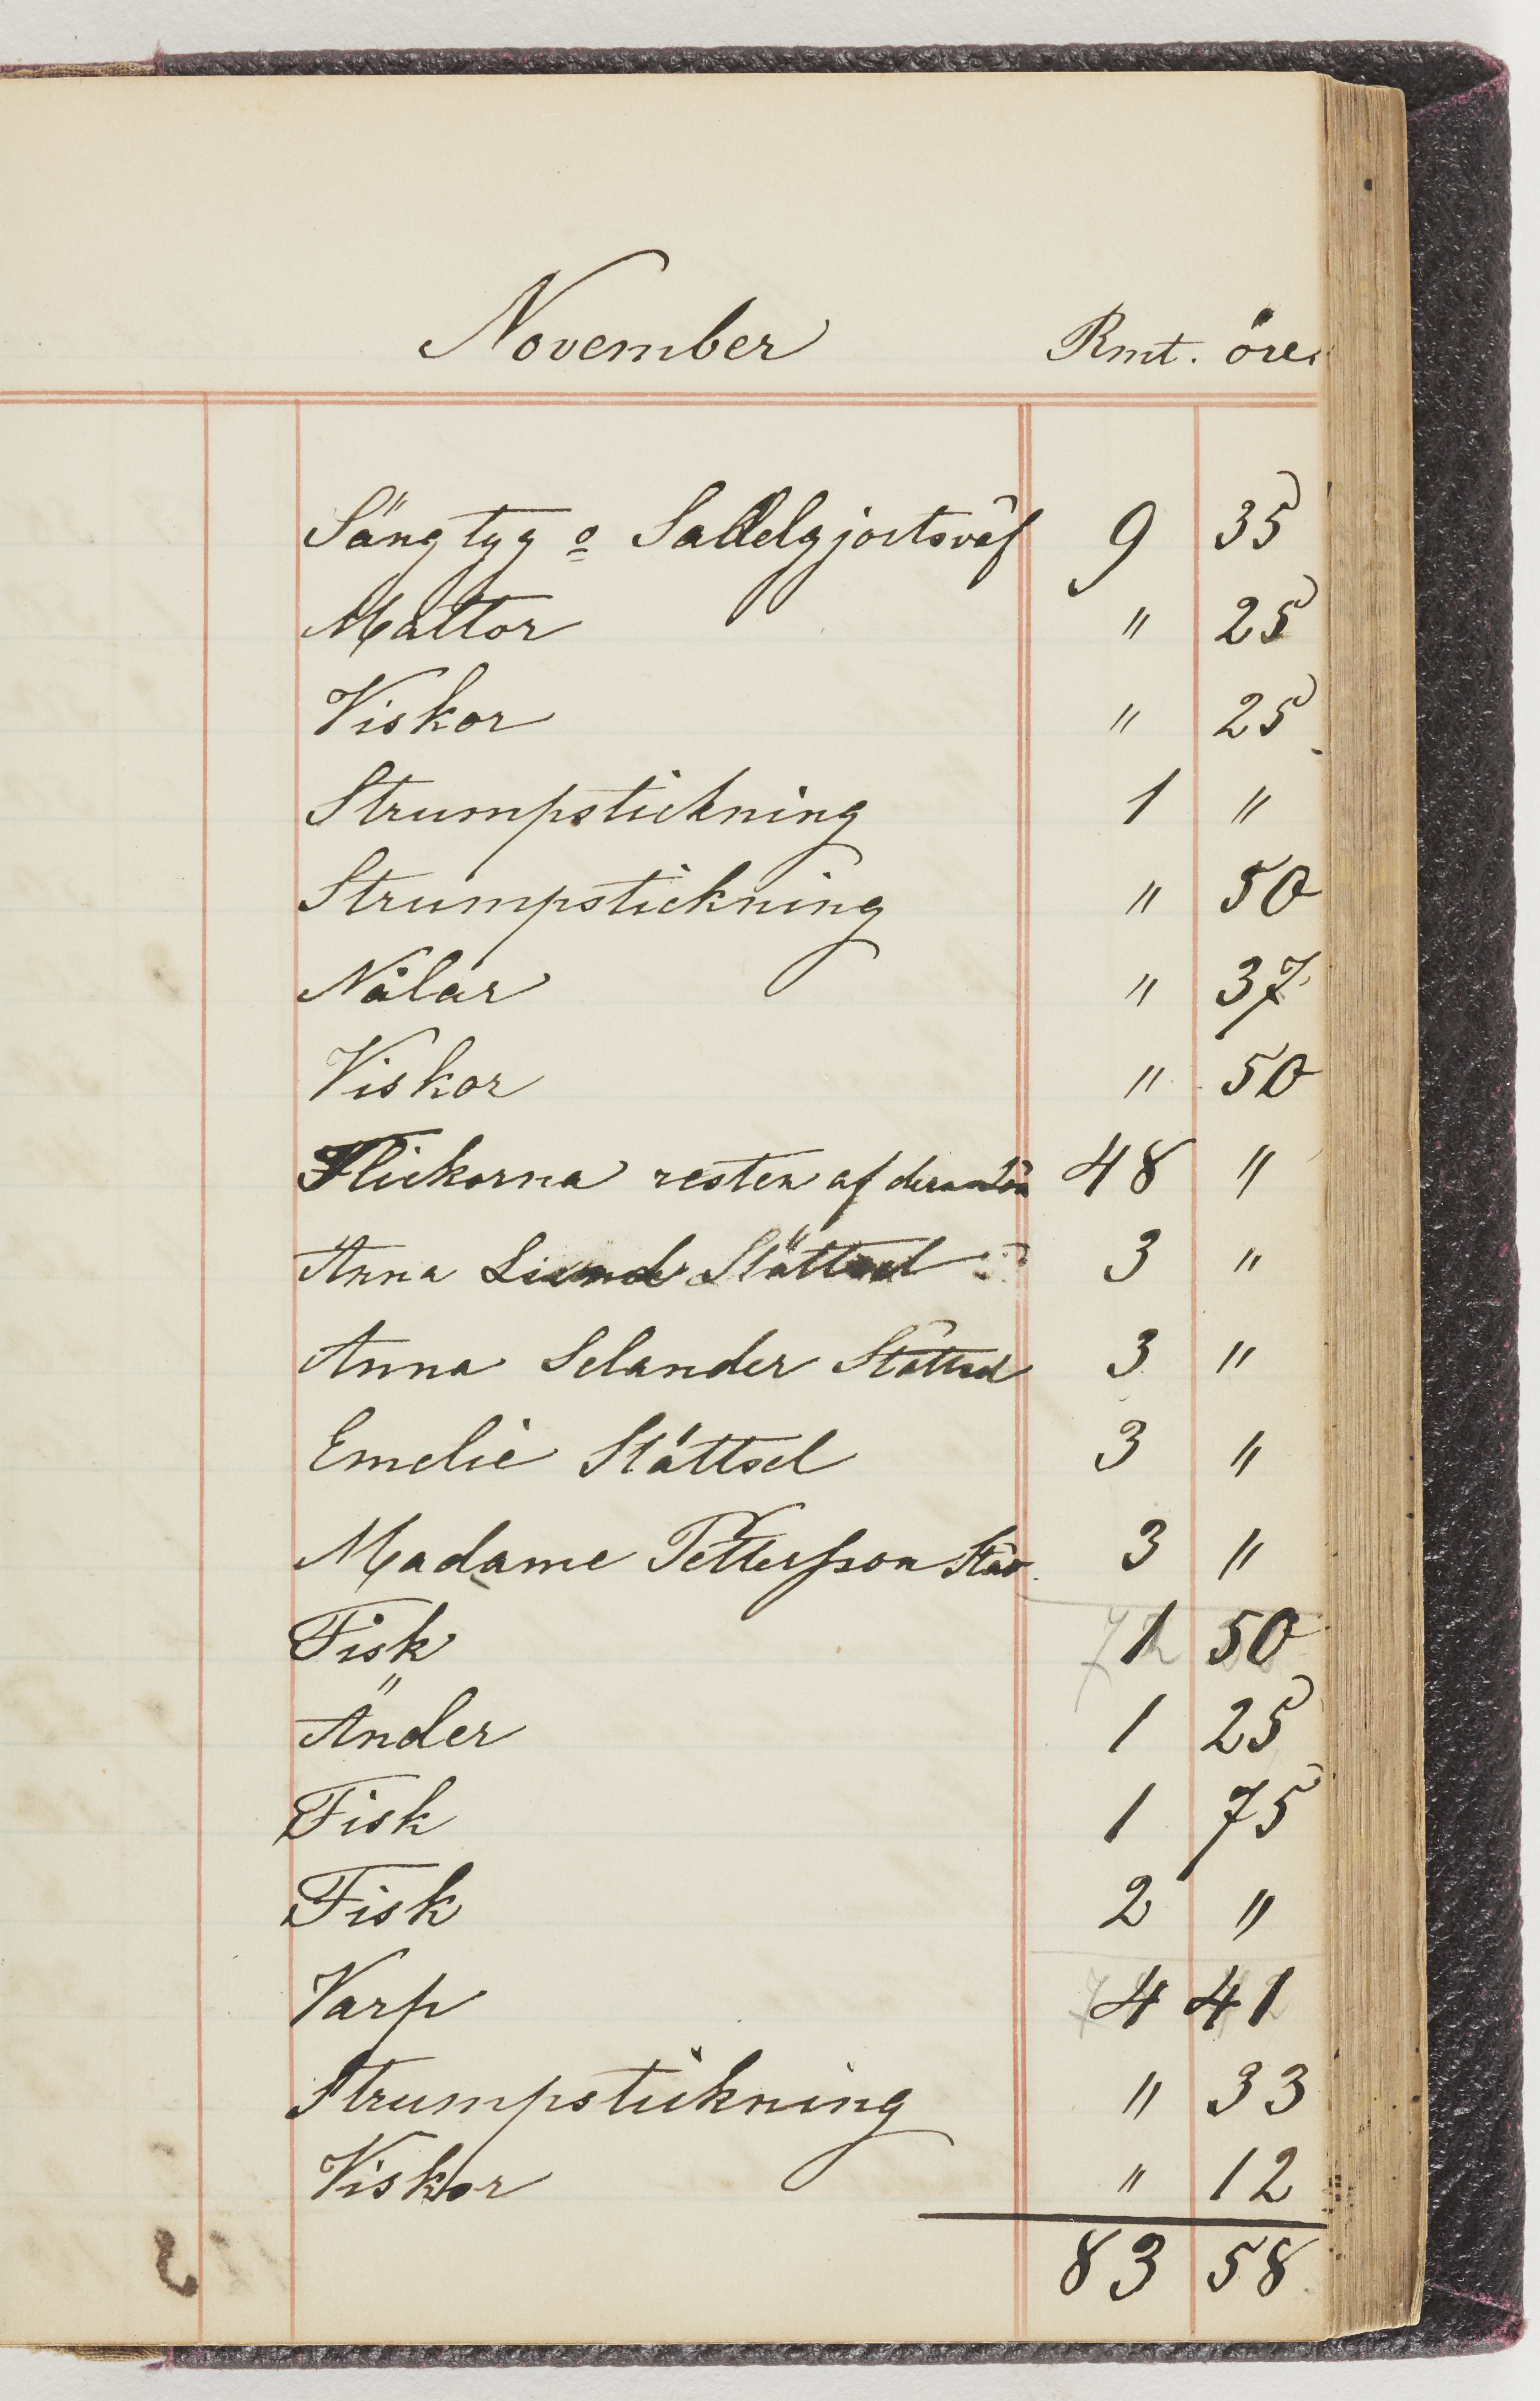 November Rmt. öre
Sängtyg o Sadelgjortsväf 9 35
Mattor " 25
Viskor " 25
Strumpstickning 1 "
Strumpstickning " 50
Nålar " 37
Viskor " 50
Flickorna resten af deras lön 48 "
Anna Lund Stättsel 3 "
Anna Selander Stättsel 3 "
Emelie Stättsel 3 "
Madame Pettersson Stät 3 "
Fisk 1 50
Änder 1 25
Fisk 1 75
Fisk 2 "
Varp 4 41
Strumpstickning " 33
Viskor " 12
83 58